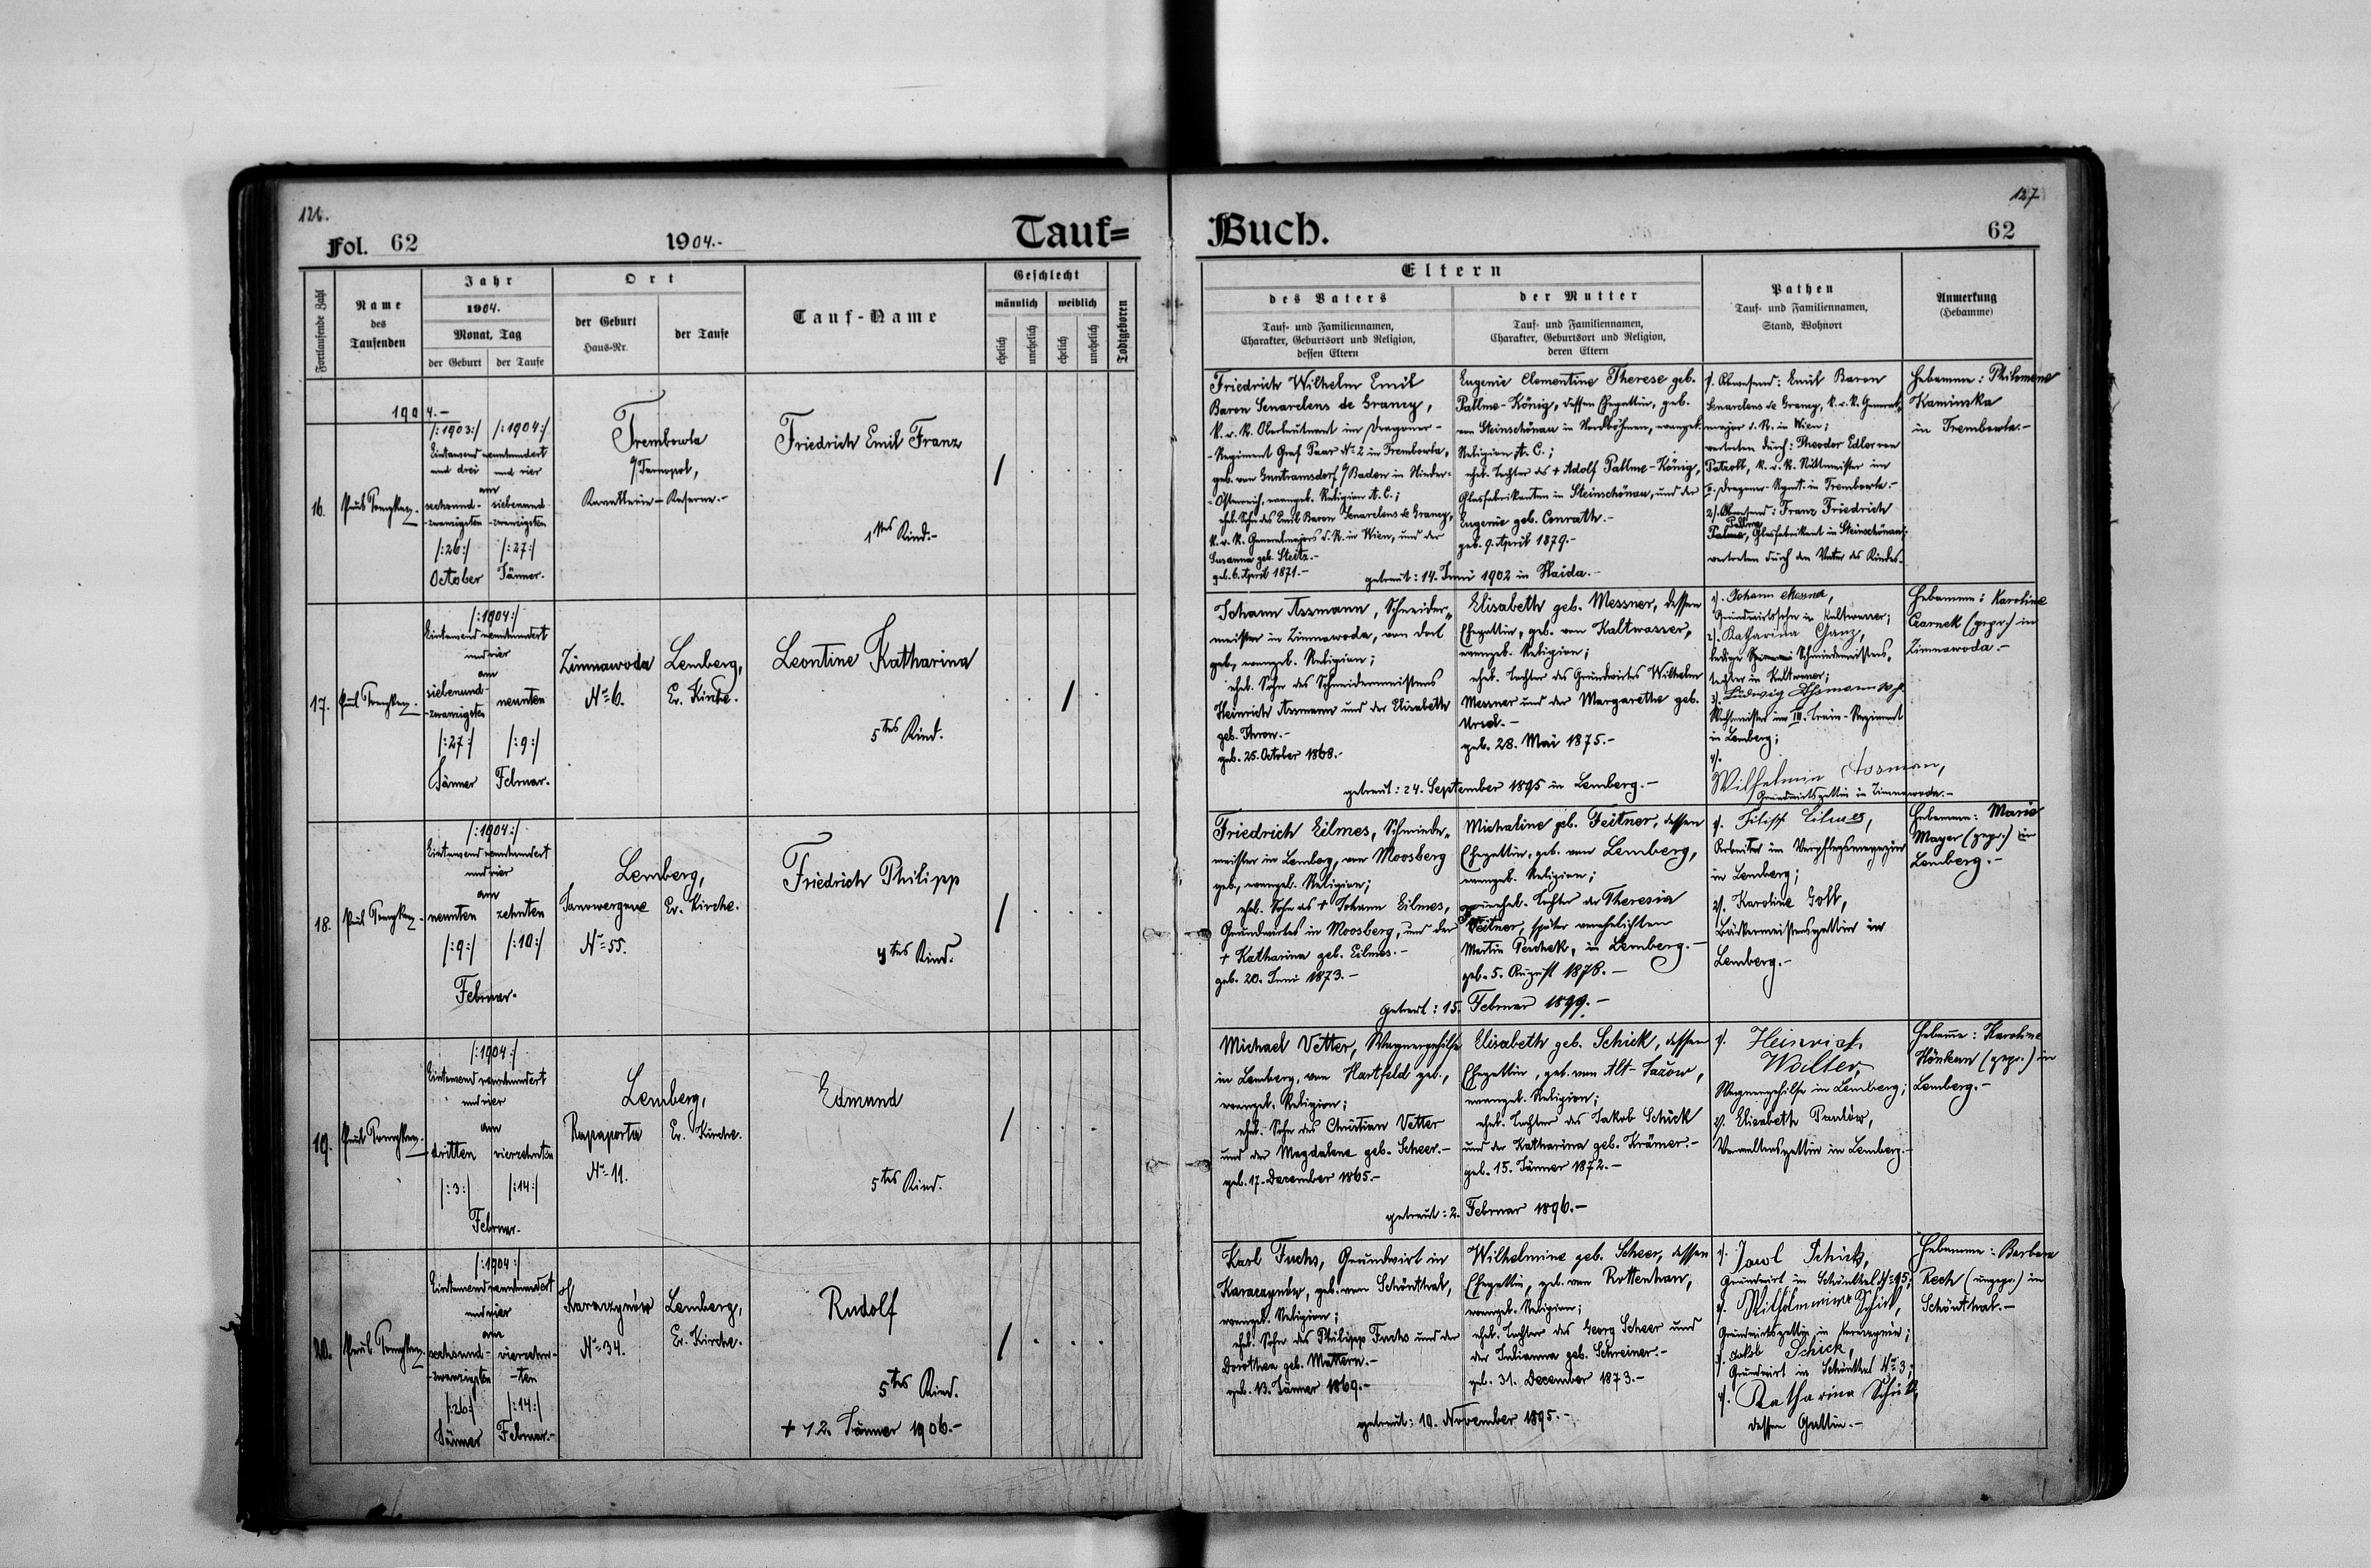 126.
127
Fol. 62
1904.-
Tauf=
Buch.
62
Fortlaufende Zahl
Name
des
Taufenden
Jahr
1904.
Monat, Tag
der Geburt
der Taufe
Ort
der Geburt
Haus-Nr.
der Taufe
Tauf-Name
Geschlecht
männlich
weiblich
ehelich
unehelich
ehelich
unehelich
Todtgeboren
Eltern
des Vaters
Tauf- und Familiennamen,
Charakter, Geburtsort und Religion,
dessen Eltern
der Mutter
Tauf- und Familiennamen,
Charakter, Geburtsort und Religion,
deren Eltern
Pathen
Tauf- und Familiennamen,
Stand, Wohnort
Anmerkung
(Hebamme)
1904.-
16.
/:1903:/ /:1904:/
Eintausend neunhundert
und drei und vier
am
sechsund- siebenund-
-zwanzigsten -zwanzigsten
/:26:/ /:27:/
October Jänner.
Trembowla
Tarnopol,
Kavallerie-Kaserne.-
Friedrich Emil Franz
1tes Kind.-
Friedrich Wilhelm Emil
Baron Senarclens de Grancy,
k. u. k. Oberleutnant im Dragoner-
-Regiment Graf Paar No 2 in Trembowla,
geb. von Guntramsdorf / Baden in Nieder-
-Österreich, evangel. Religion A. C.;
ehel. Sohn des Emil Baron Senarclens de Grancy,
k. u. k. Generalmajors d. R. in Wien, und der
Susanna geb. Steitz.-
geb. 6. April 1871.-
Eugenie Clementine Therese geb.
Pallme-König, dessen Ehegattin, geb.
von Steinschönau in Nordböhmen, evangel.
Religion A. C.;
ehel. Tochter des + Adolf Pallme-König,
Glasfabrikanten in Steinschönau, und der
Eugenie geb. Conrath.-
geb. 9. April 1879.-
getraut: 14. Juni 1902 in Haida.-
1). Abwesend: Emil Baron
Senarclens de Grancy, k. u. k. General-
major d. R. in Wien;
vertreten durch: Theodor Edler von
k. u. k. Rittmeister im
II. Dragoner-Regmt. in Trembowla.-
2). Abwesend: Franz Friedrich
Pallme, Glasfabrikant in Steinschönau;
vertreten durch den Vater des Kindes.-
Hebamme: Philomena
Kaminska
in Trembowla.-
17.
/:1904:/
Eintausend neunhundert
und vier
am
siebenund-
-zwanzigsten neunten
/:27:/ /:9:/
Jänner Februar.
Zimnawoda
No 6.
Lemberg,
Ev. Kirche.
Leontine Katharina
5tes Kind.
Johann Assmann, Schneider-
meister in Zimnawoda, von dort
geb., evangel. Religion;
ehel. Sohn des Schneidermeisters
Heinrich Assmann und der Elisabeth
geb. Thron.-
geb. 25. October 1868.-
Elisabeth geb. Messner, dessen
Ehegattin, geb. von Kaltwasser,
evangel. Religion;
ehel. Tochter des Grundwirtes Wilhelm
Messner und der Margarethe geb.
Ursel.-
geb. 28. Mai 1875.-
getraut: 24. September 1895 in Lemberg.-
1). Johann Messner,
Grundwirtssohn in Kaltwasser;
2). Katharina Ganz,
ledige Schmiedmeisters-
tochter in Kaltwasser;
3). Ludwig Assmann
Wachtmeister im III. Train-Regiment
in Lemberg;
4).
Wilhelmin Assman,
Grundwirtsgattin in Zimnawoda.-
Hebamme: Karoline
Czarnek (gepr.) in
Zimnawoda.-
18.
/:1904:/
Eintausend neunhundert
und vier
am
neunten zehnten
/:9:/ /:10:/
Februar.
Lemberg,
Janowergasse Ev. Kirche.
No 55.
Friedrich Philipp
4tes Kind.
Friedrich Eilmes, Schmiede-
meister in Lemberg, von Moosberg
geb., evangel. Religion;
ehel. Sohn des + Johann Eilmes,
Grundwirtes in Moosberg, und der
+ Katharina geb. Eilmes.-
geb. 20. Juni 1873.-
Michaline geb. Feitner, dessen
Ehegattin, geb. von Lemberg,
evangel. Religion;
unehel. Tochter der Theresia
Feitner, später verehelichten
Martin Peschek, in Lemberg.-
geb. 5. August 1878.-
getraut: 15. Februar 1899.-
1). Filipp Eilmes,
Arbeiter im Verpflegsmagazin
in Lemberg;
2). Karoline Gott,
Bäckermeistersgattin in
Lemberg.-
Hebamme: Marie
Mayer (gepr.) in
Lemberg.-
19.
/:1904:/
Eintausend neunhundert
und vier
am
dritten vierzehnten
/:3:/ /:14:/
Februar.
Lemberg,
Rapaporta Ev. Kirche.
No 11.
Edmund
5tes Kind.
Michael Vetter, Wagnergehilfe
in Lemberg, von Hartfeld geb.,
evangel. Religion;
ehel. Sohn des Christian Vetter
und der Magdalena geb. Scheer.-
geb. 17. December 1865.-
Elisabeth geb. Schick, dessen
Ehegattin, geb. von Alt-Jazów,
evangel. Religion;
ehel. Tochter des Jakob Schick
und der Katharina geb. Krämer.-
geb. 15. Jänner 1872.-
getraut: 2. Februar 1896.-
1). Heinrich
Walter,
Wagnergehilfe in Lemberg;
2). Elisabeth Pawlów,
Verwaltersgattin in Lemberg.-
Hebamme: Karoline
(gepr.) in
Lemberg.-
20.
/:1904:/
Eintausend neunhundert
und vier
am
sechsund- vierzehn-
-zwanzigsten -ten
/:26:/ /:14:/
Jänner Februar.-
Karaczynów
No 34.
Lemberg,
Ev. Kirche.
Rudolf
5tes Kind.
+ 12. Jänner 1906.-
Karl Fuchs, Grundwirt in
Karaczynów, geb. von Schönthal,
evangel. Religion;
ehel. Sohn des Philipp Fuchs und der
Dorothea geb. Mattern.-
geb. 13. Jänner 1869.-
Wilhelmine geb. Scheer, dessen
Ehegattin, geb. von Rottenhan,
evangel. Religion;
ehel. Tochter des Georg Scheer und
der Julianna geb. Schreiner.-
geb. 31. December 1873.-
getraut: 10. November 1895.-
1). Schick,
Grundwirt in Schönthal
2). Wilhelmine Schick,
Grundwirtsgattin in Karaczynów;
3). Jakob Schick,
Grundwirt in Schönthal No 3;
4). Katharina Schick,
dessen Gattin.-
Hebamme: Barbara
Rech (ungepr.) in
Schönthal.-